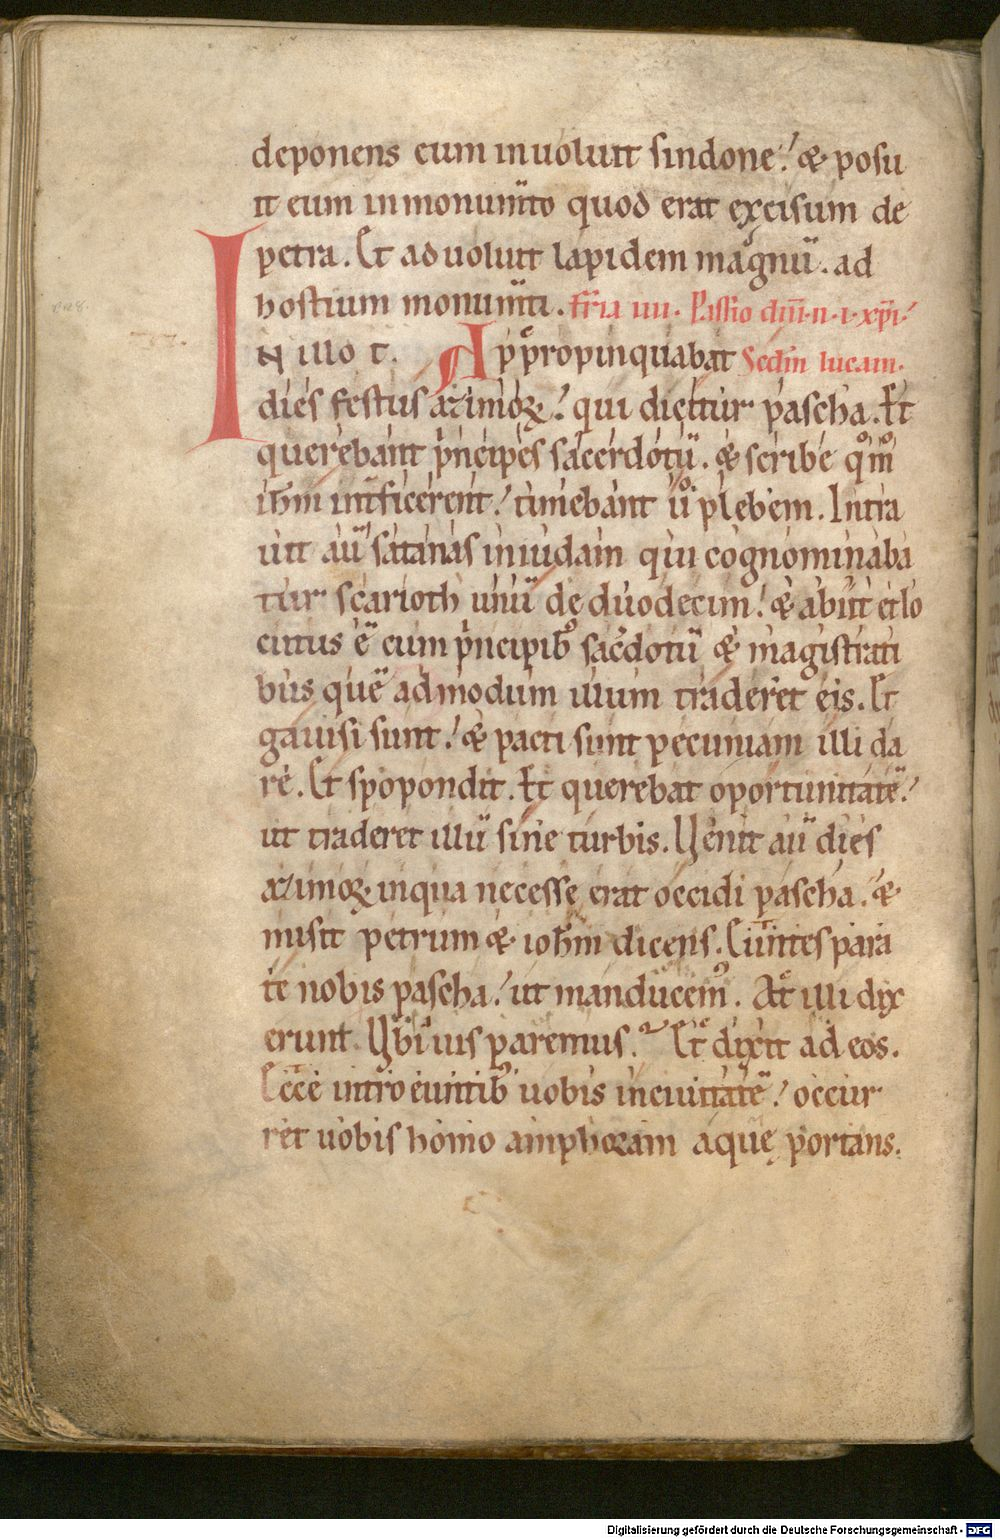 deponens eum inuoluit sindone. & posu
it eum in monum̅to quod erat excisum de
petra. Et aduoluit lapidem magnu̅. ad
hostium monum̅ti. fr̅ia iiii. Passio dn̅i. n. i. xp̅i.
IN illo t. Appropinquabat Sed̅m lucam.
dies festus azimoꝝ. qui dicitur pascha. Et
querebant p̍ncipes sacerdotu̅. & scribe qͦmͦ
ih̅m int̅ficerent. timebant u̅ͦ plebem. Intra
uit au̅ satanas in iudam qui cognominaba
tur scarioth unu̅ de duodecim. & abiit et lo
cutus e̅ cum p̍ncipibꝰ sac̅dotu̅ & magistrati
bus que̅ admodum illum traderet eis. Et
gauisi sunt. & pacti sunt pecuniam illi da
re. Et spopondit. Et querebat oportunitate̅.
ut traderet illu̅ sine turbis. Uenit au̅ dies
azimoꝝ in qua necesse erat occidi pascha. &
misit petrum & ioh̅m dicens. Eu̅ntes para
te nobis pascha. ut manducemꝰ. At illi dix
erunt. Ubi uis paremus. Et dixit ad eos.
Ecce introeuntibꝰ uobis in ciuitate̅. occur
ret uobis homo amphoram aquę portans.
Digitalisierung gefördert durch die Deutsche Forschungsgemeinschaft - DFG